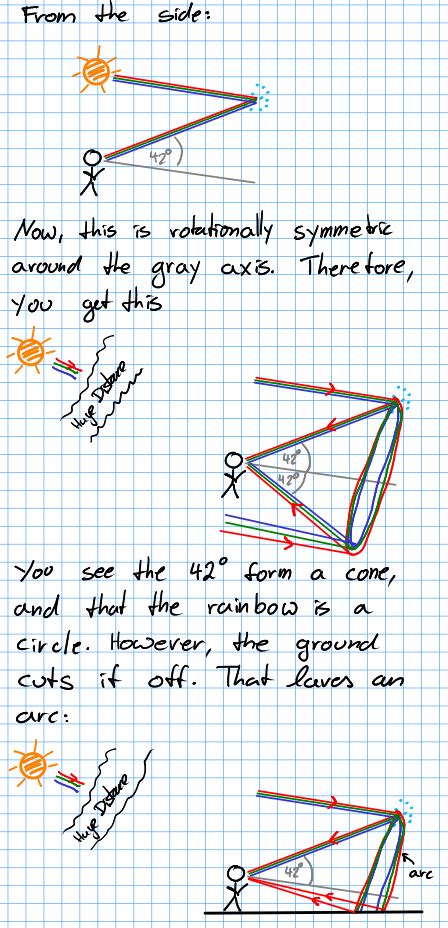 From the side:
42°
Now, this is rotationally symmetric
around the gray axis. Therefore,
you get this
Huge Distance
42°
42°
You see the 42° form a cone,
and that the rainbow is a
circle. However, the ground
cuts if off. That laves an
arc:
Huge Distance
42°
arc